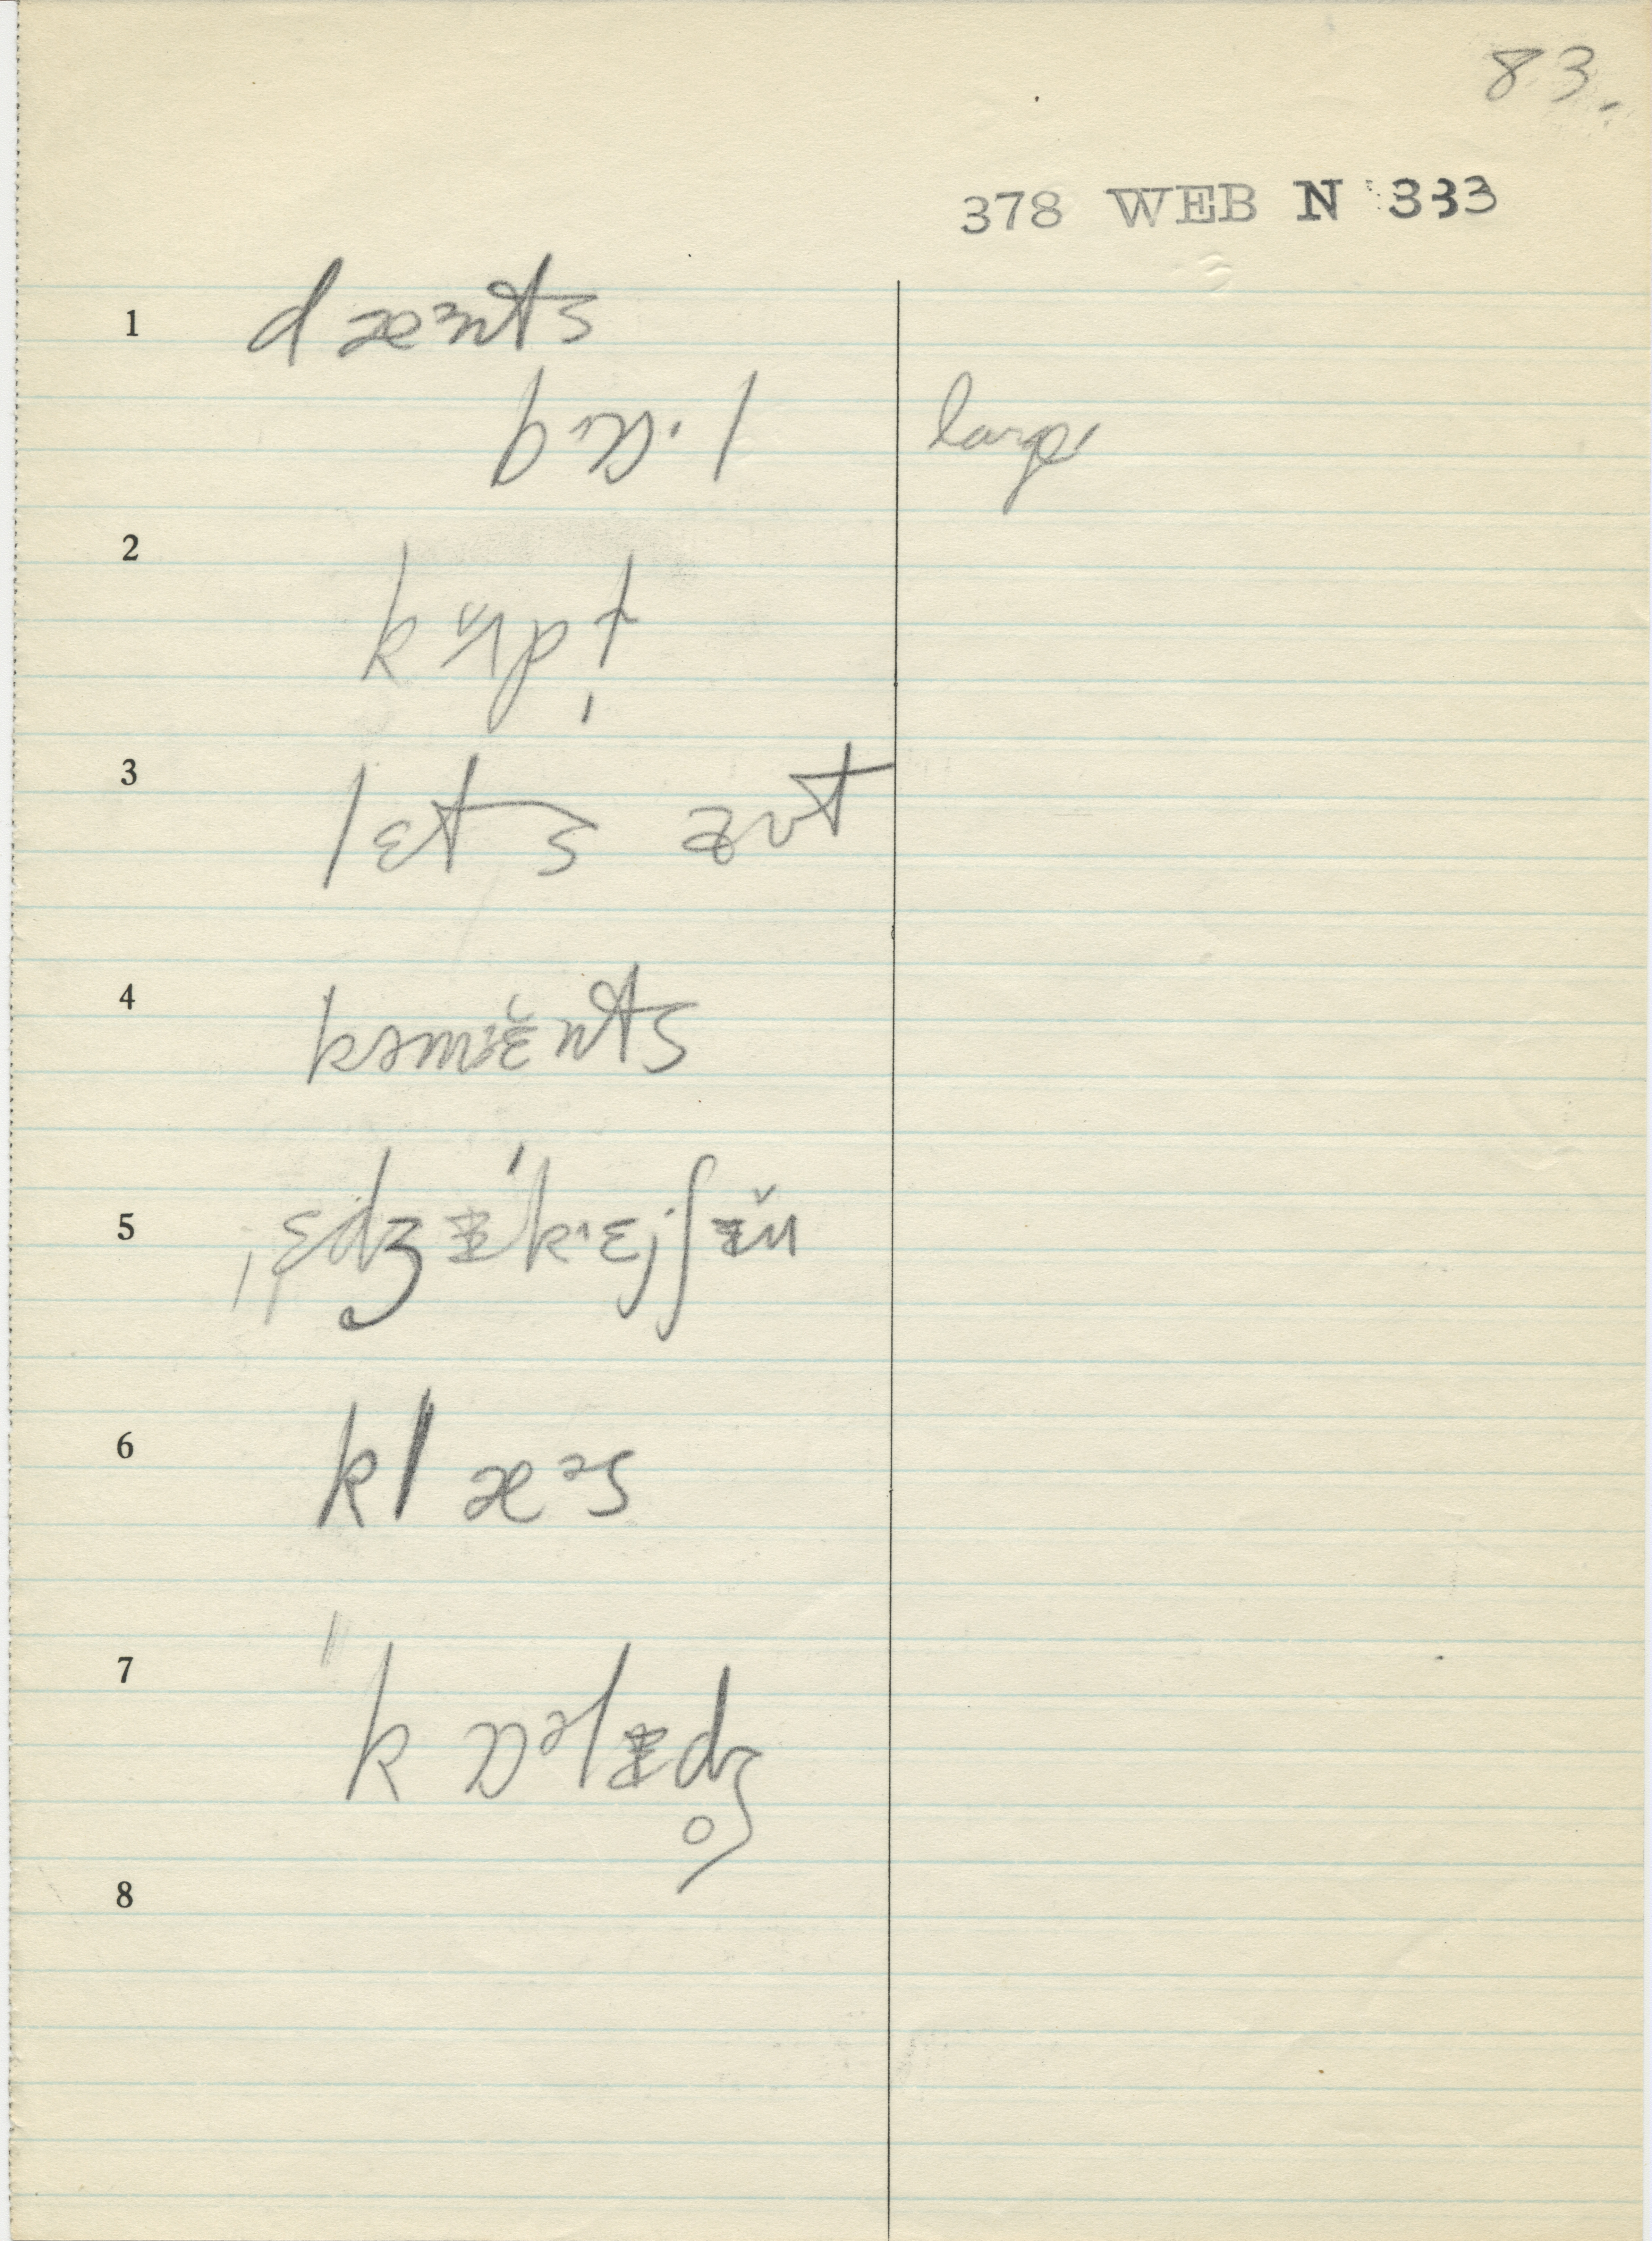 83.
378 WEB N 333
1 dæᵊnts
bɒ·l large
2
kʌpt
3 lɛts ɐʊt
4 kəmɛ̆nts
5 ˌɛdʒᵻˈkʻɛjʃᵻ̆n
6 klæᵊs
7 ˈkɒᵊlᵻdʒ̥
8